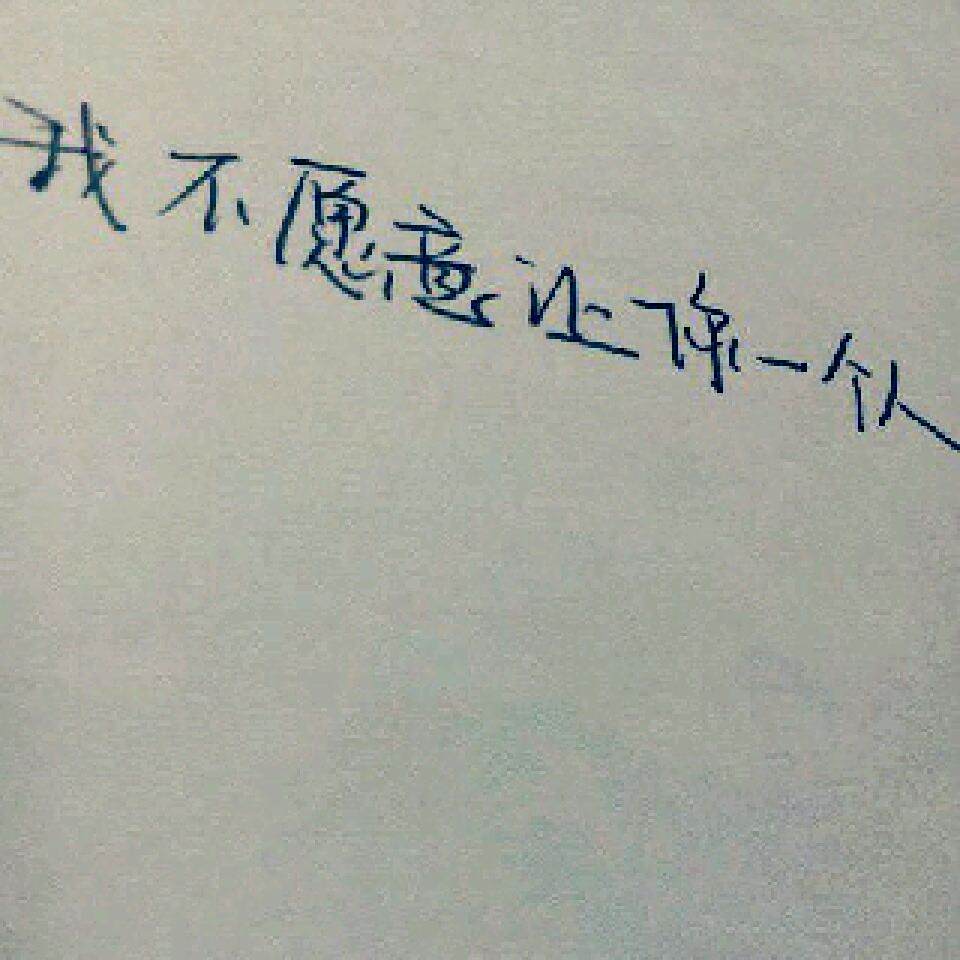 我不愿意让你一个人